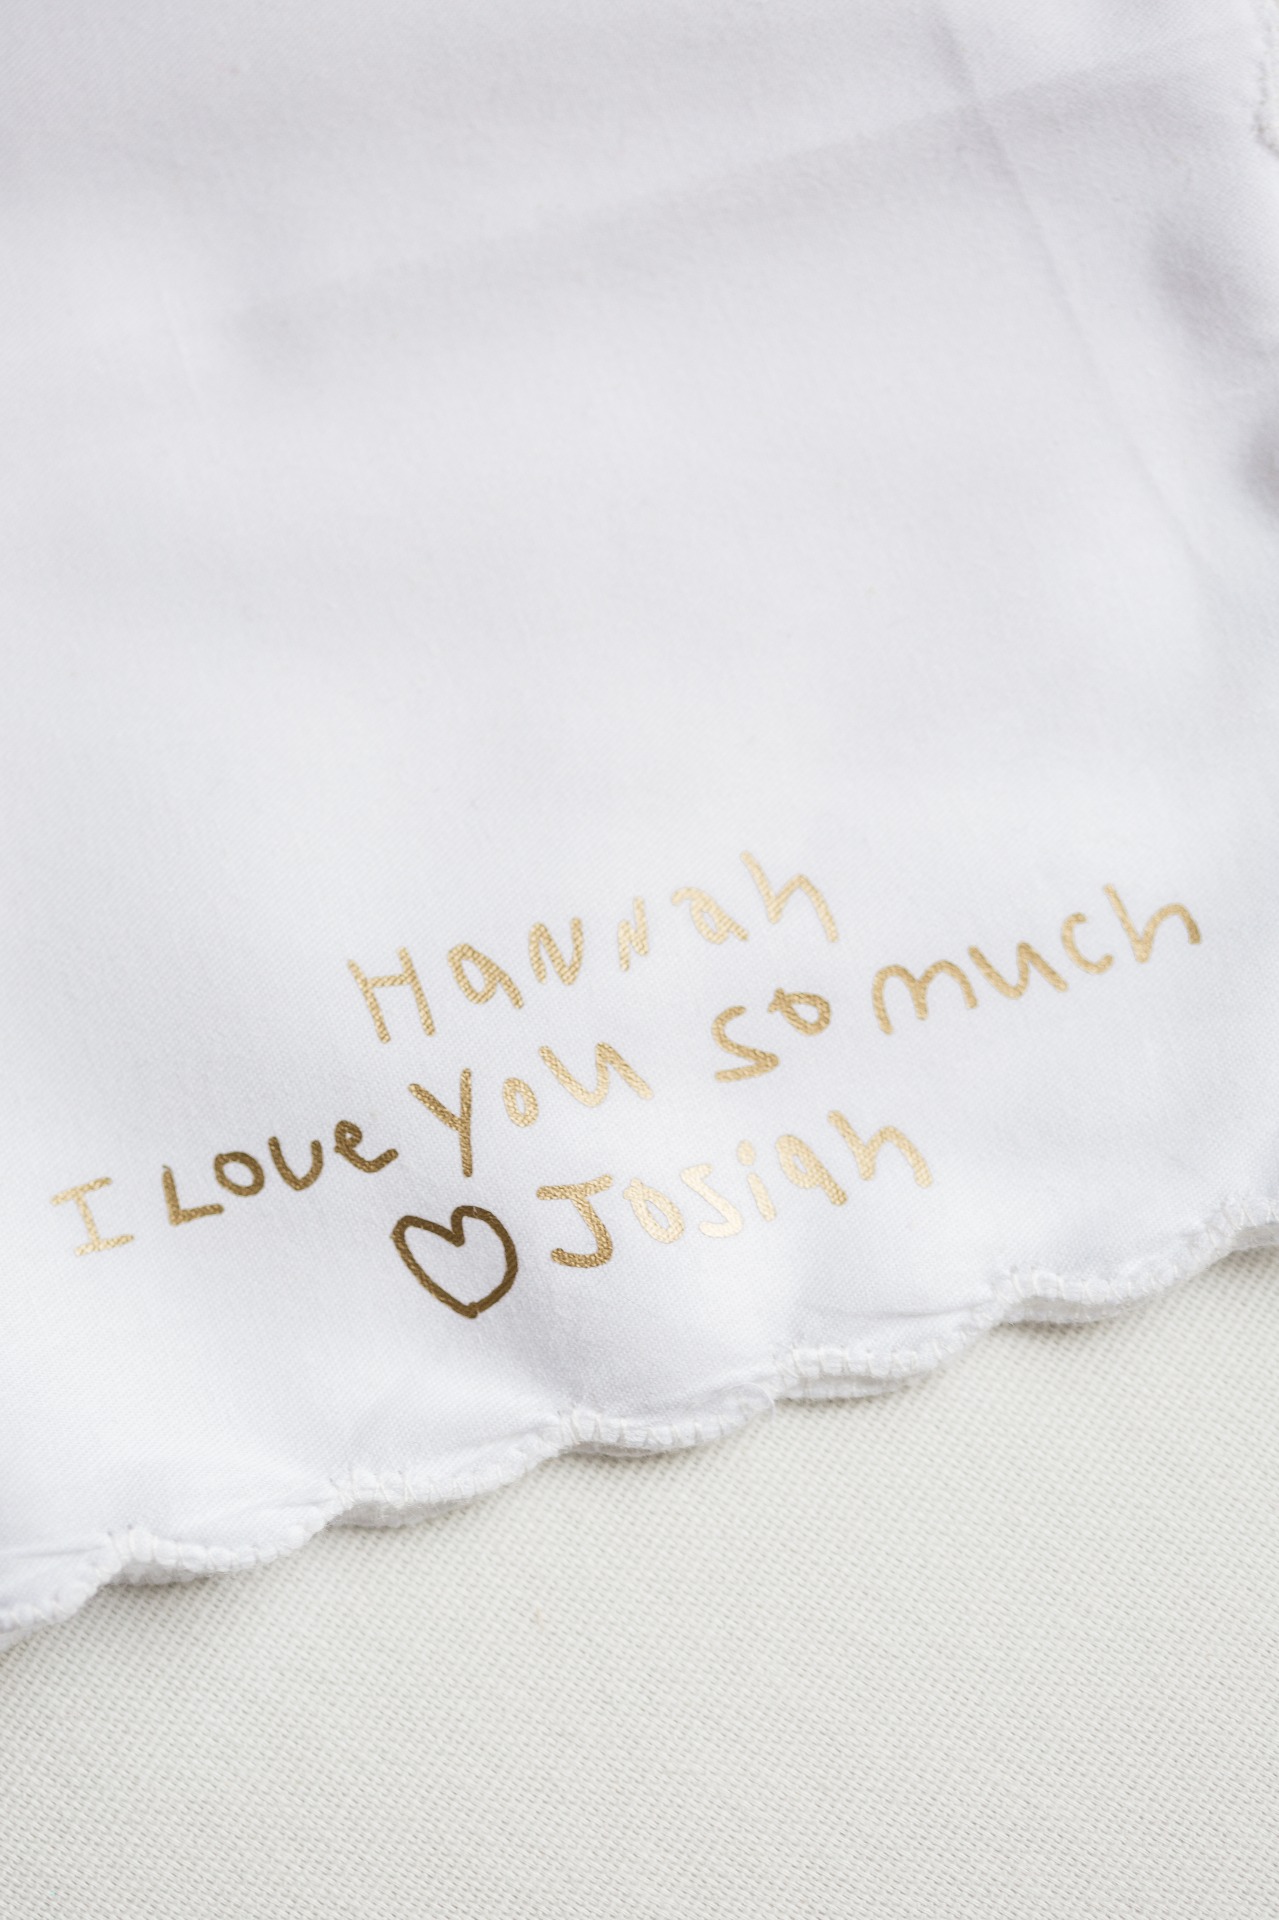 Hannah
I Love You so much
♡ Josiah